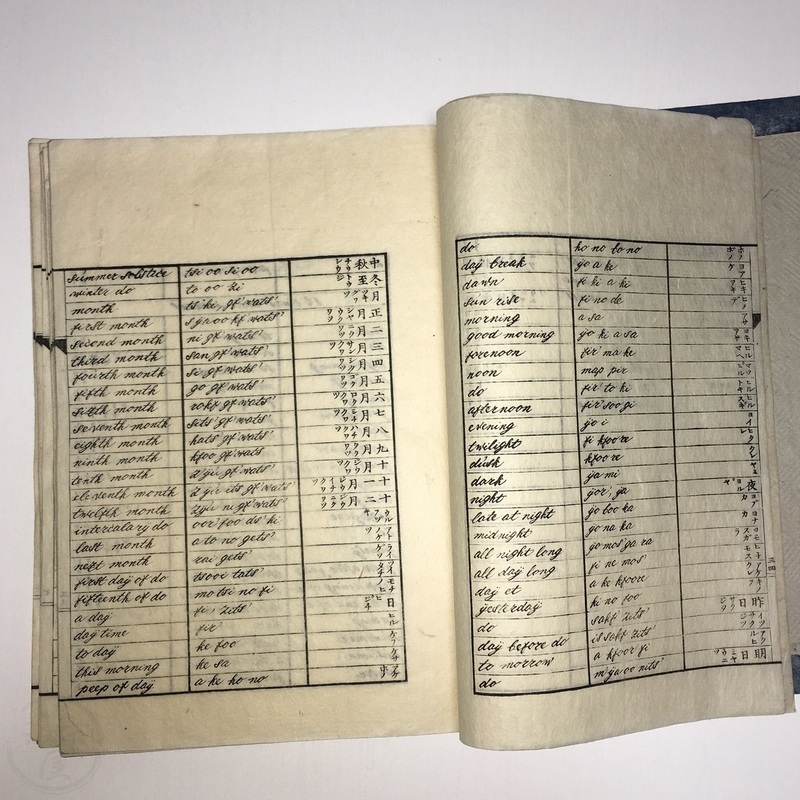 summer solstice tsi oo si oo 中秋 チウシ
winter do to oo zi 冬至 トウジ
month ts'ki, gf wats' 月 ツキ グワツ
first month s'ya oo kf wats' 正月
second month ni gf wats' 二月
third month san gf wats' 三月
fourth month si gf wats' 四月
fifth month go gf wats' 五月
sixth month rokf gf wats' 六月
seventh month sits' gf wats' 七月
eighth month hats' gf wats' 八月
ninth month kfoo gf wats' 九月
tenth month z'yu gf wats' 十月
eleventh month z'yu its gf wats' 十一月
twelfth month z'yu ni gf wats' 十二月
intercalary do oor' foo ds' ki
last month a to no gets'
next month rai gets'
first day of do tsooi tats'
fifteenth of do mo tsi no fi
a day fi, zits' 日
day time fir' ヒル
to day ke foo ケフ
this morning ke sa ケサ
peep of day a ke ho no
do ho no bo no ホノホノ
day break yo a ke ヨアケ
dawn fi ki a ki ヒキアキ
sun rise fi no de ヒノデ
morning a sa アサ
good morning yo ki a sa ヨキアサ
forenoon fir' ma ke ヒルマヘ
noon map pir マツピル
do fir' to ki ヒルトキ
afternoon fir' soo gi ヒルスギ
evening yo i ヨイ
twilight fi kfoo re ヒクレ
dusk kfoo re クレ
dark ya mi ヤミ
night yor', ya 夜 ヨル ヤ
late at night yo boo ka ヨブカ
midnight yo na ka ヨナカ
all night long yo mos' ga ra ヨモスガラ
all day long fi ne mos' ヒネモス
day et a ke kfoore アケクレ
yesterday ki no foo キノフ
do sakf zits' 昨日 サクジツ
day before do is sakf zits'
to morrow a kfoor' fi アクルヒ
do m'ya oo nits' 明日 ミヤウニツ